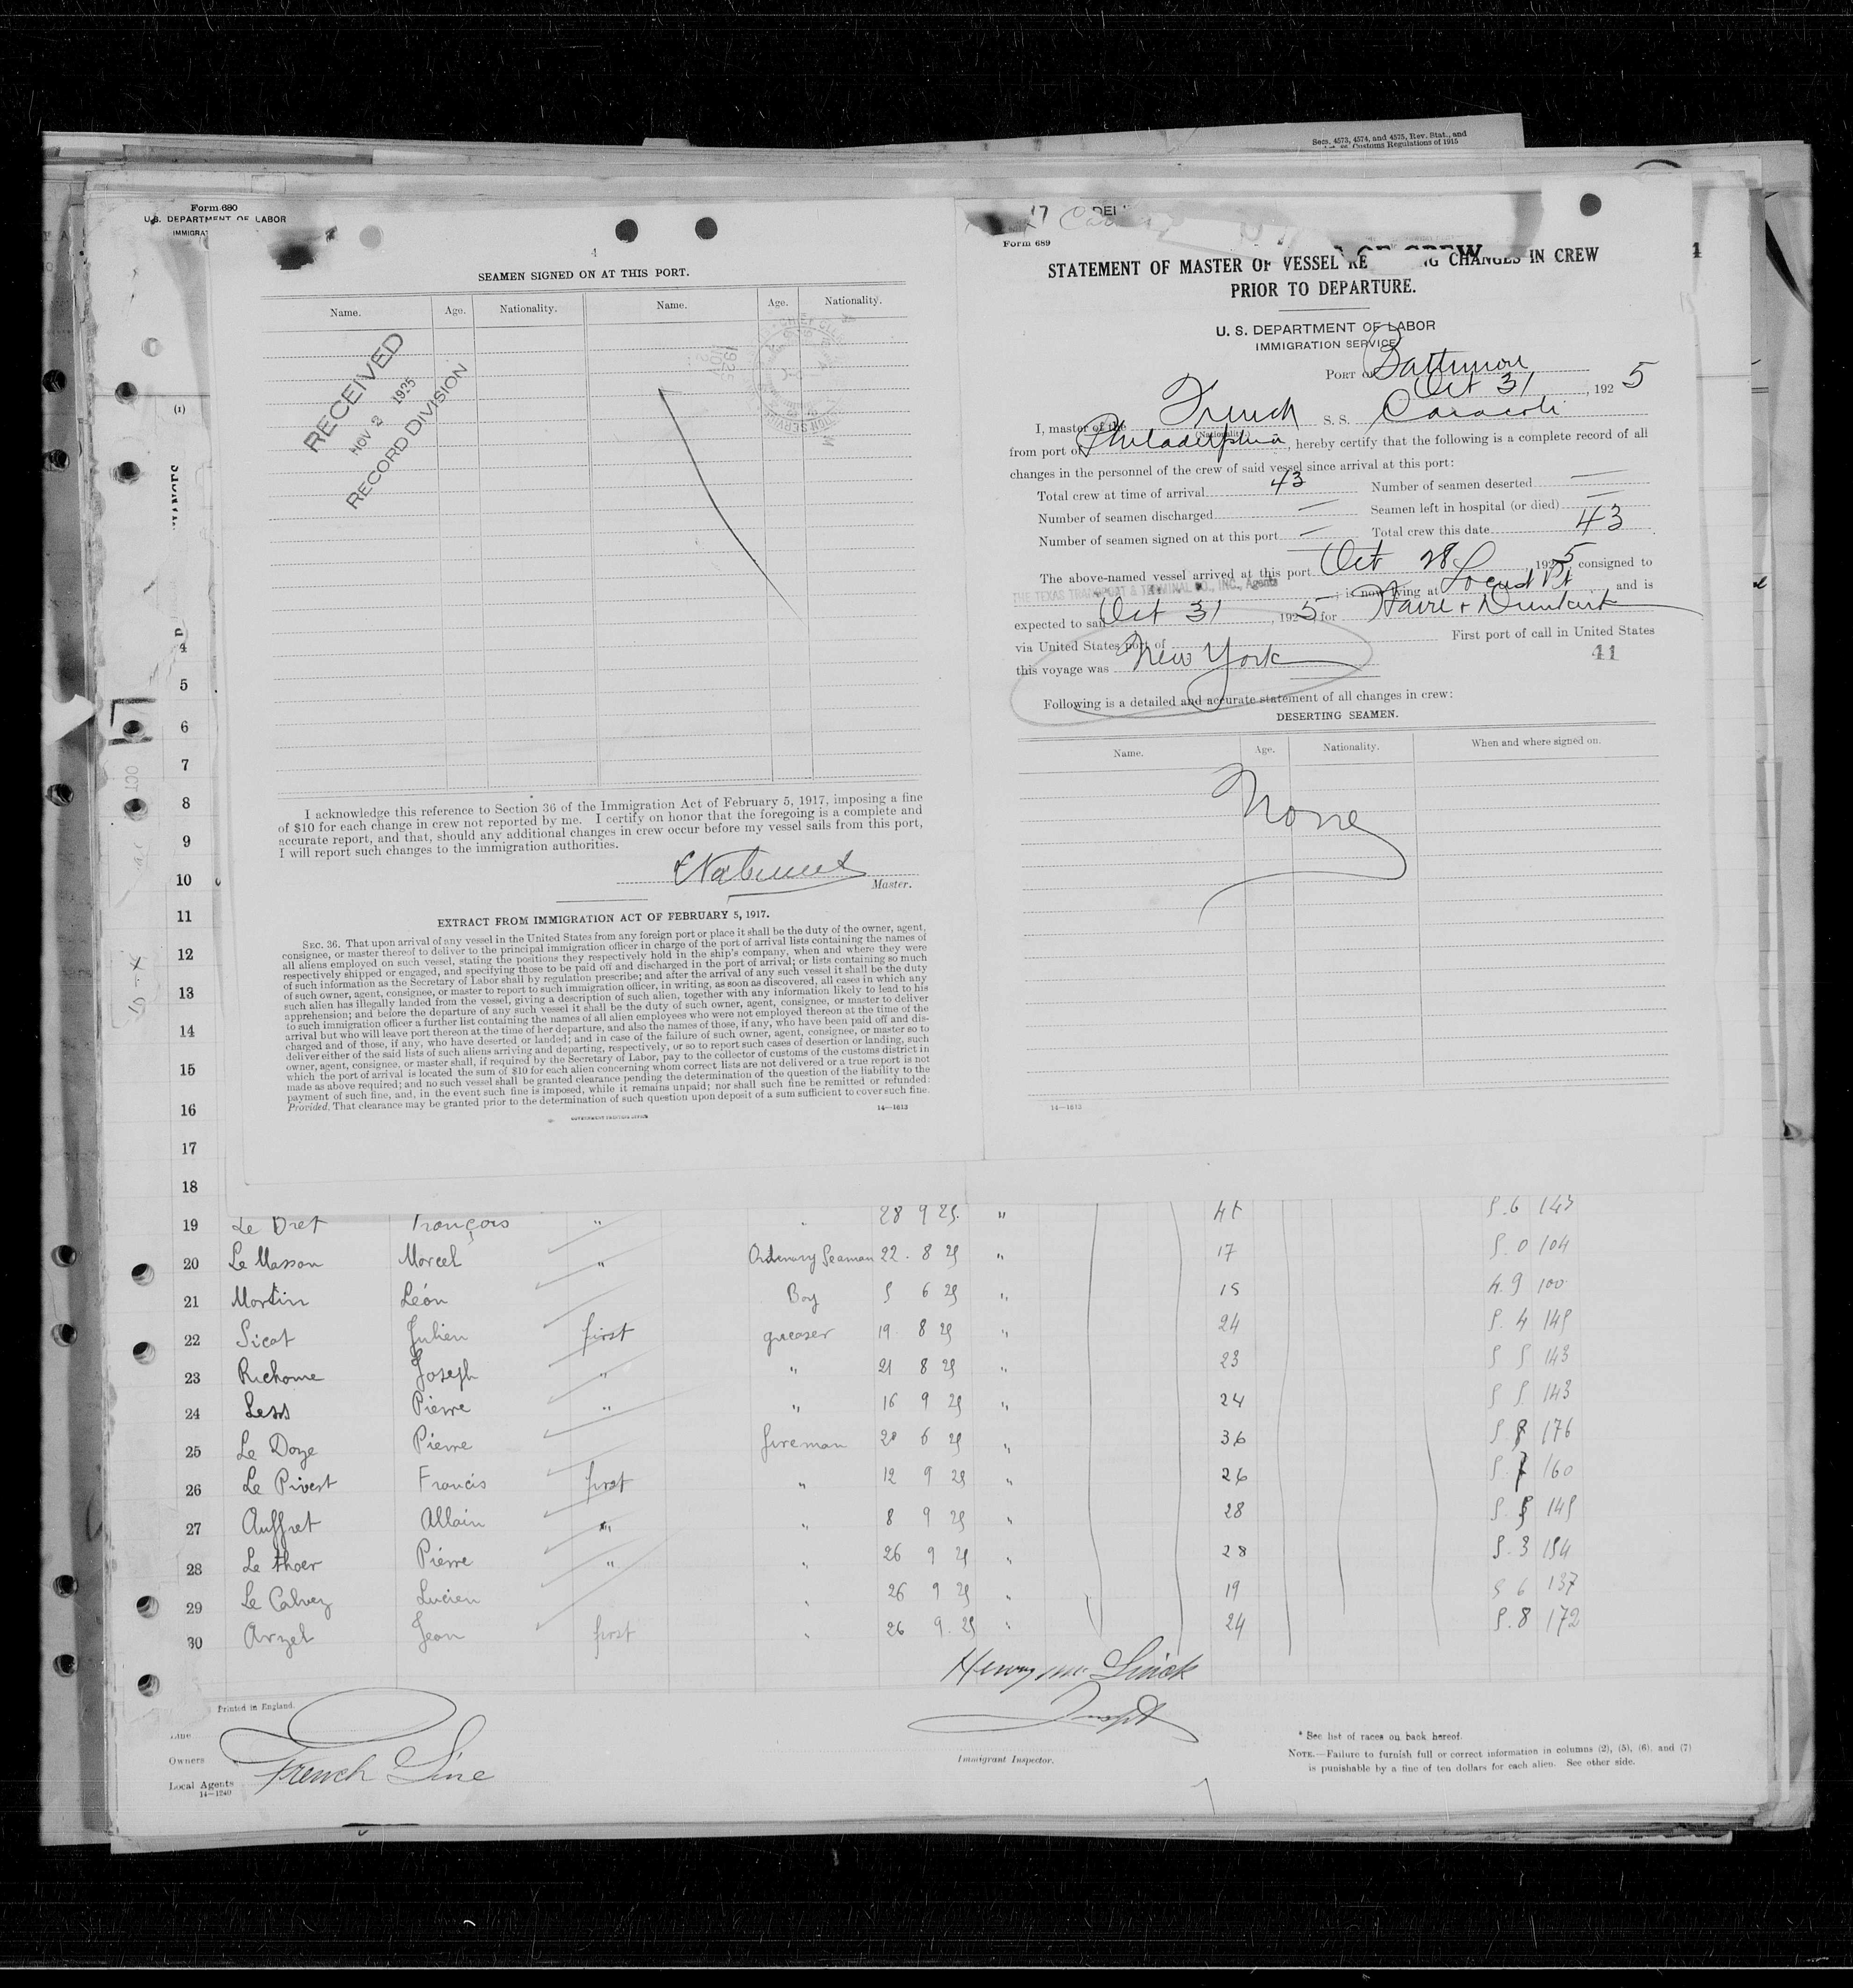 Secs. 4573, 4574, and 4575, Rev. Stat., and
Customs Regulations of 1915
Form 680
U.S. DEPARTMENT OF LABOR
4
SEAMEN SIGNED ON AT THIS PORT.
Name. Age. Nationality. Name. Age. Nationality.
RECEIVED
NOV 2 1925
RECORD DIVISION
I acknowledge this reference to Section 36 of the Immigration Act of February 5, 1917, imposing a fine
of $10 for each change in crew not reported by me. I certify on honor that the foregoing is a complete and
accurate report, and that, should any additional changes in crew occur before my vessel sails from this port,
I will report such changes to the immigration authorities.
Master.
EXTRACT FROM IMMIGRATION ACT OF FEBRUARY 5, 1917.
SEC. 36. That upon arrival of any vessel in the United States from any foreign port or place it shall be the duty of the owner, agent,
consignee, or master thereof to deliver to the principal immigration officer in charge of the port of arrival lists containing the names of
all aliens employed on such vessel, stating the positions they respectively hold in the ship's company, when and where they were
respectively shipped or engaged, and specifying those to be paid off and discharged in the port of arrival; or lists containing so much
of such information as the Secretary of Labor shall by regulation prescribe; and after the arrival of any such vessel it shall be the duty
of such owner, agent, consignee, or master to report to such immigration officer, in writing, as soon as discovered, all cases in which any
such alien has illegally landed from the vessel, giving a description of such alien, together with any information likely to lead to his
apprehension; and before the departure of any such vessel it shall be the duty of such owner, agent, consignee, or master to deliver
to such immigration officer a further list containing the names of all alien employees who were not employed thereon at the time of the
arrival but who will leave port thereon at the time of her departure, and also the names of those, if any, who have been paid off and dis-
charged and of those, if any, who have deserted or landed; and in case of the failure of such owner, agent, consignee, or master so to
deliver either of the said lists of such aliens arriving and departing, respectively, or so to report such cases of desertion or landing, such
owner, agent, consignee, or master shall, if required by the Secretary of Labor, pay to the collector of customs of the customs district in
which the port of arrival is located the sum of $10 for each alien concerning whom correct lists are not delivered or a true report is not
made as above required; and no such vessel shall be granted clearance pending the determination of the question of the liability to the
payment of such fine, and, in the event such fine is imposed, while it remains unpaid; nor shall such fine be remitted or refunded:
Provided, That clearance may be granted prior to the determination of such question upon deposit of a sum sufficient to cover such fine.
14—1613
Form 689
STATEMENT OF MASTER OF VESSEL RE G CHANGES IN CREW
PRIOR TO DEPARTURE.
U. S. DEPARTMENT OF LABOR
IMMIGRATION SERVICE
PORT OF Baltimore
Oct 31, 1925
I, master of the French S. S. Caracoli
(Nationality)
from port of Philadelphia, hereby certify that the following is a complete record of all
changes in the personnel of the crew of said vessel since arrival at this port:
Total crew at time of arrival 43 Number of seamen deserted —
Number of seamen discharged — Seamen left in hospital (or died) —
Number of seamen signed on at this port — Total crew this date 43
The above-named vessel arrived at this port Oct 28, 1925, consigned to
THE TEXAS TRANSPORT & TERMINAL CO., INC., Agents; is now lying at Locust Pt and is
expected to sail Oct 31, 1925, for Havre + Dunkirk
via United States port of First port of call in United States
this voyage was New York
41
Following is a detailed and accurate statement of all changes in crew:
DESERTING SEAMEN.
Name. Age. Nationality. When and where signed on.
None
14—1613
(1)
4
5
6
7
8
9
10
11
12
13
14
15
16
17
18
19 Le Dret François " 28 9 25 "
20 Le Masson Marcel " Ordinary Seaman 22 . 8 25 " 17 5.0 104
21 Martin Léon Boy 5 6 25 " 15 4.9 100
22 Sicot Julien first greaser 19 . 8 25 " 24 5.4 145
23 Richome Joseph " " 21 8 25 " 23 5 5 143
24 Less Pierre " " 16 9 25 " 24 5 5 143
25 Le Doze Pierre fireman 28 6 25 " 36 176
26 Le Pivert Francis first " 12 9 25 " 26 5.7 160
27 Auffret Allain " " 8 9 25 " 28 5.5 145
28 Le thoer Pierre " " 26 9 25 " 28 5.3 154
29 Le Calvez Lucien " 26 9 25 " 19 5 6 137
30 Arzel Jean first " 26 9 . 25 " 24 5.8 172
Henry M. Linick
Printed in England.
Line
Owners
French Line
Local Agents
14—1240
Immigrant Inspector.
* See list of races on back hereof.
NOTE.—Failure to furnish full or correct information in columns (2), (5), (6), and (7)
is punishable by a fine of ten dollars for each alien. See other side.